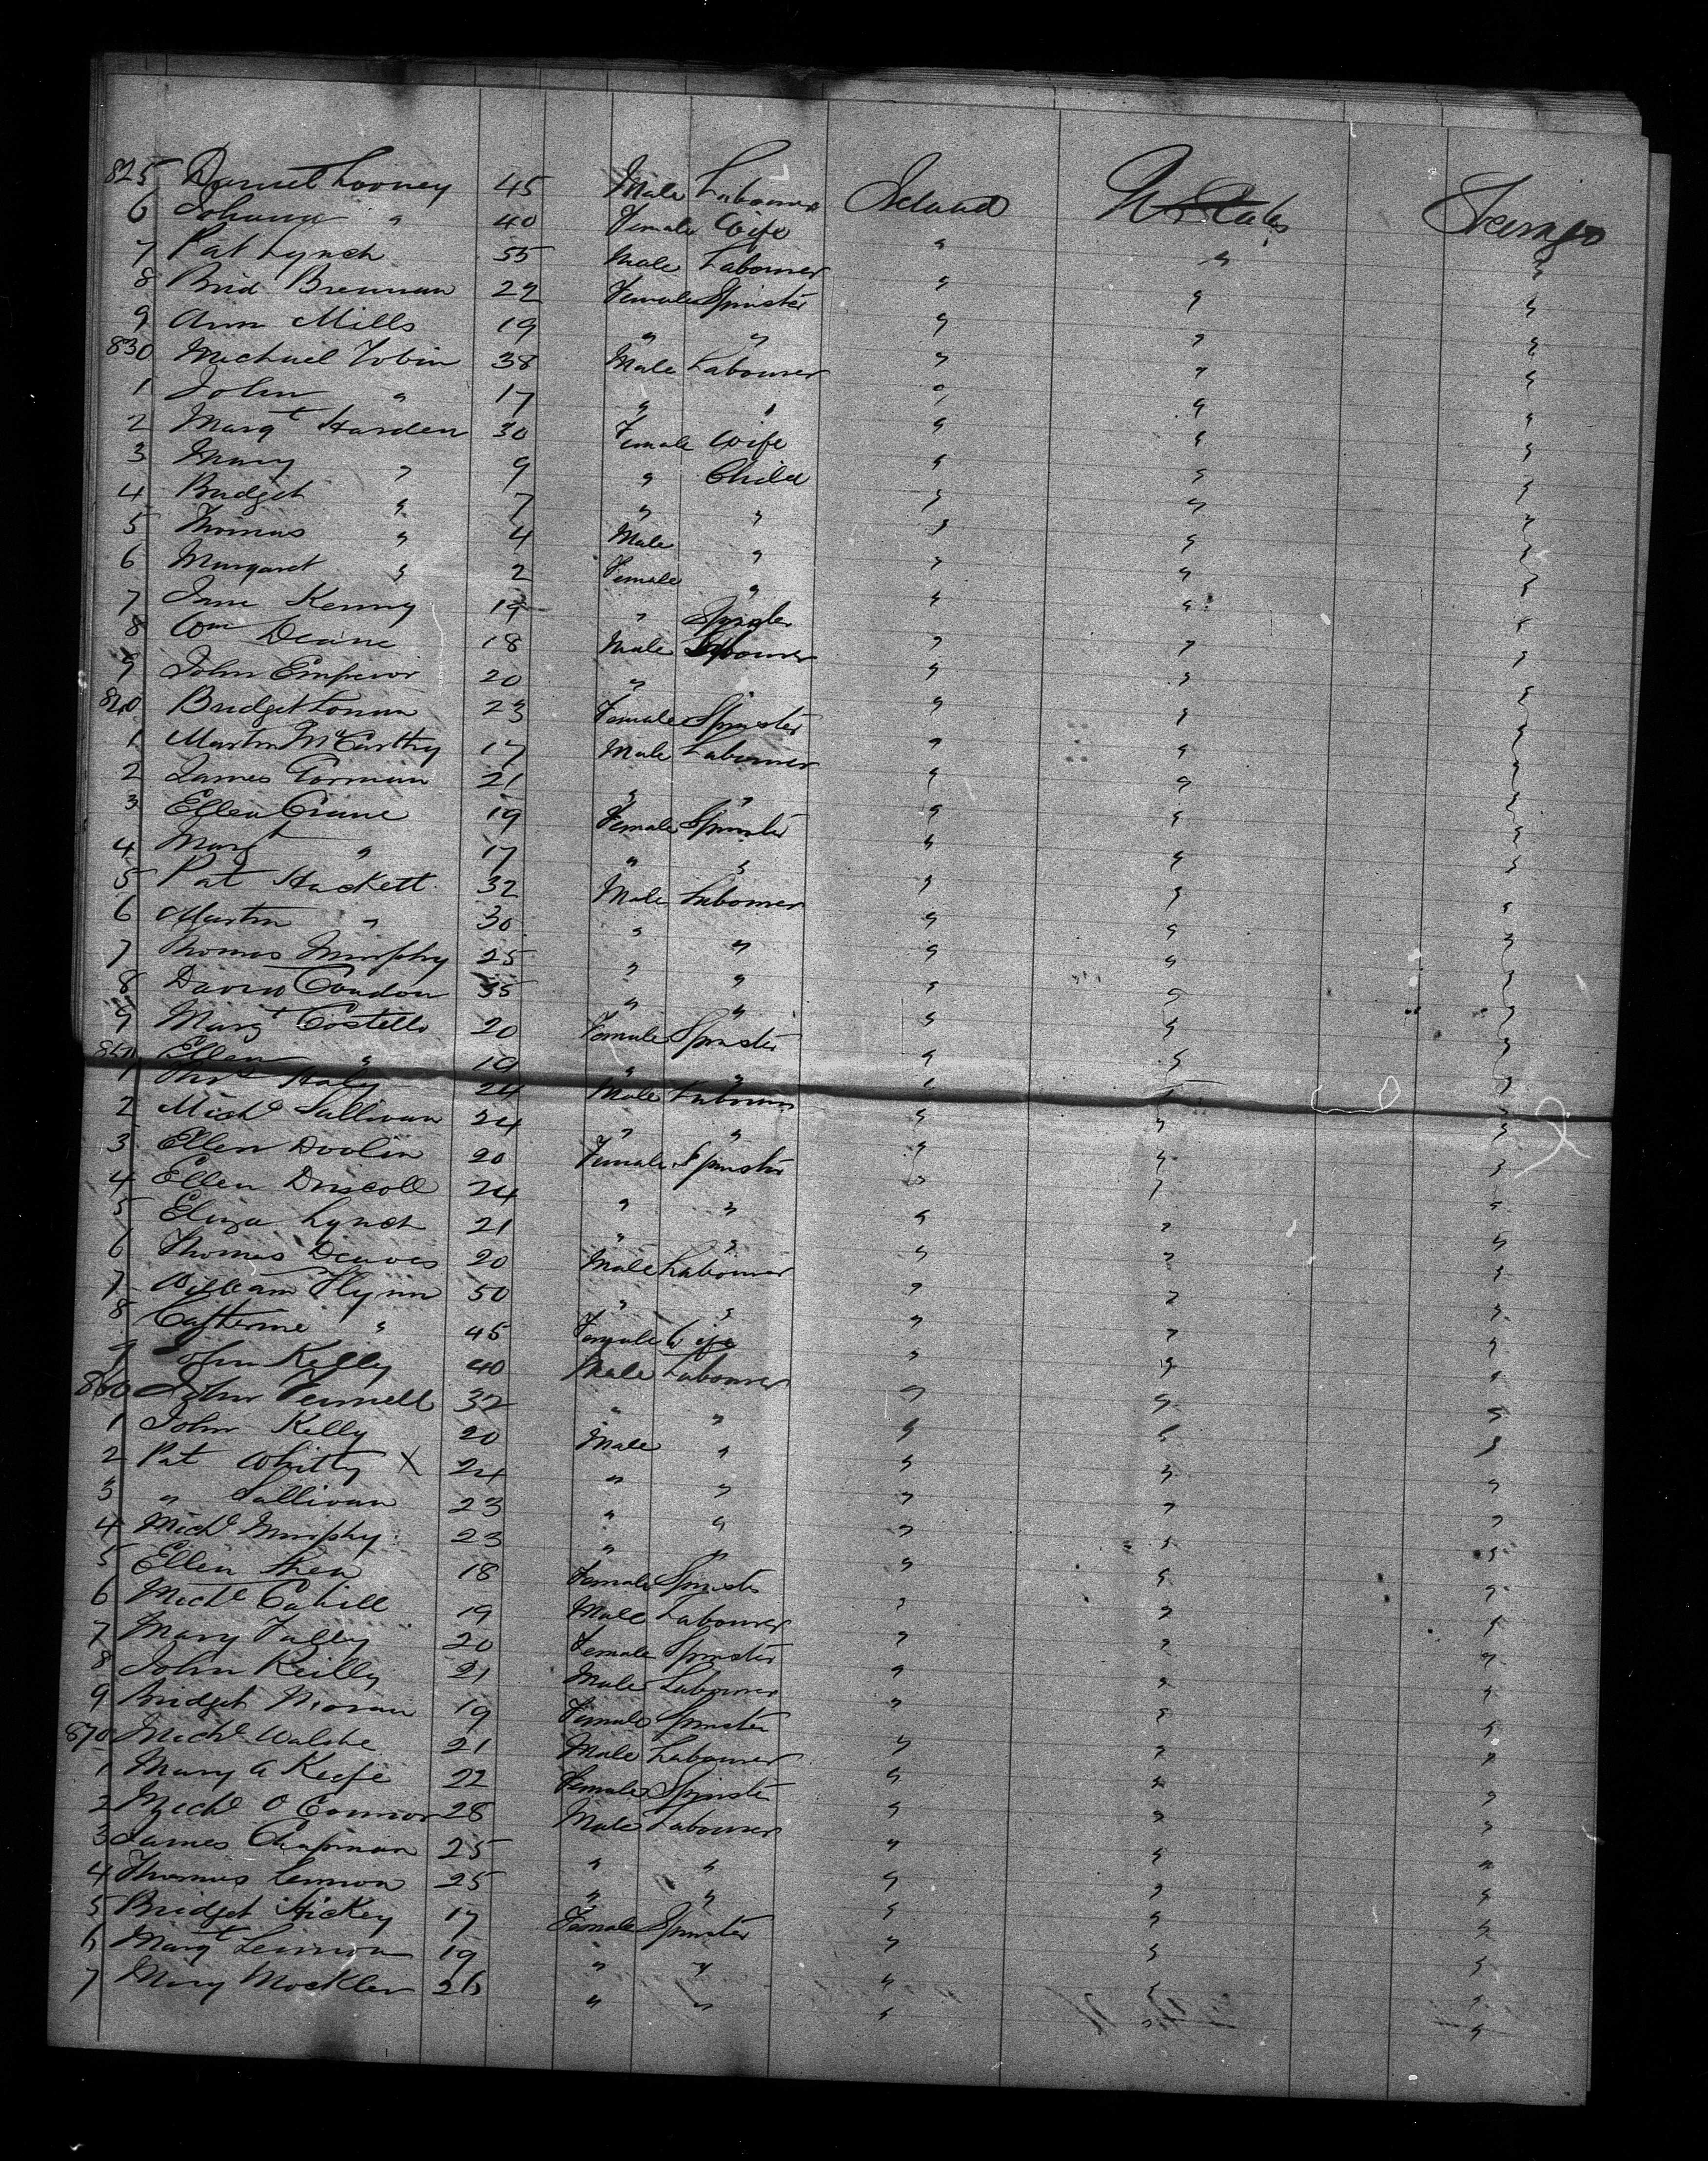 825 Daniel Looney 45 Male Labourer Ireland U States Steerage
6 Johana " 40 Female Wife " " "
7 Pat Lynch 55 Male Labourer " " "
8 Brid Brennan 22 Female Spinster " " "
9 Ann Mills 19 " " " " "
830 Michael Tobin 38 Male Labourer " " "
1 John " 17 " " " " "
2 Margt Harden 30 Female Wife " " "
3 Mary " 9 " Child " " "
4 Bridget " 7 " " " " "
5 Thomas " 4 Male " " " "
6 Margaret " 2 Female " " " "
7 Jane Kenny 19 " Spinster " " "
8 Wm Deane 18 Male Labourer " " "
9 John Emperor 20 " " " "
840 Bridget 23 Female Spinster " " "
1 Martin McCarthy 17 Male Labourer " " "
2 James Gorman 21 " " " " "
3 Ellen Crane 19 Female Spinster " " "
4 Margt " 17 " " " " "
5 Pat Hackett 32 Male Labourer " " "
6 Martin " 30 " " " " "
7 Thomas Murphy 25 " " " " "
8 David Condon 35 " " " " "
9 Margt Costello 20 Female Spinster " " "
850 Ellen " 19 " " " " "
1 Thos Haly 24 Male Labourer " " "
2 Michl Sullivan 24 " " " " "
3 Ellen Doolin 20 Female Spinster " " "
4 Ellen Driscoll 24 " " " " "
5 Eliza Lynch 21 " " " " "
6 Thomas 20 Male Labourer " " "
7 William Flynn 50 " " " " "
8 Catherine " 45 Female Wife " " "
9 John Kelly 40 Male Labourer " " "
860 John Fennell 32 " " " " "
1 John Kelly 20 Male " " " "
2 Pat Whitty X 24 " " " " "
3 " Sullivan 23 " " " " "
4 Michl Murphy 23 " " " " "
5 Ellen Shea 18 Female Spinster " " "
6 Michl Cahill 19 Male Labourer " " "
7 Mary Tully 20 Female Spinster " " "
8 John Reilly 21 Male Labourer " " "
9 Bridget Moran 19 Female Spinster " " "
870 Michl Walshe 21 Male Labourer " " "
1 Mary A Keefe 22 Female Spinster " " "
2 Michl O Connor 28 Male Labourer " " "
3 James Chapman 25 " " " " "
4 Thomas Lennon 25 " " " " "
5 Bridget Hickey 17 Female Spinster " " "
6 Margt Lennon 19 " " " " "
7 Mary Mockler 26 " " " " "